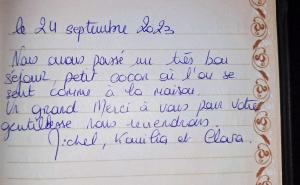 le 24 septembre 2023
Nous avons passé un très bon
séjour, petit cocon où l'on se
sent comme à la maison.
Un grand Merci à vous pour votre
gentillesse nous reviendrons.
Michel, Kamilia et Clara.